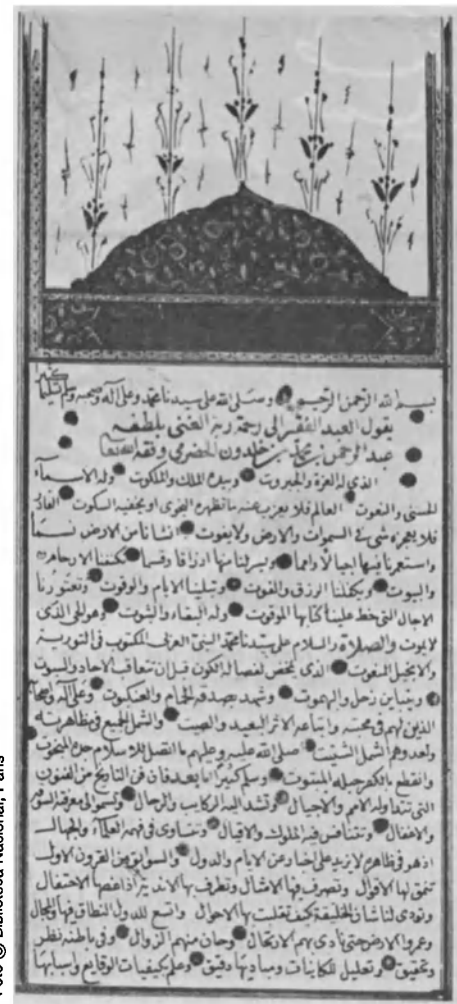 بسم الله الرحمن الرحيم وصلى الله على سيدنا محمد وعلى آله وصحبه وسلم تسليما كثيرا
يقول العبد الفقير الى رحمة ربه الغني بلطفه
عبد الرحمن بن محمد بن خلدون الحضرمي وفقه الله تعالى
الذي له العزة والجبروت وبيده الملك والملكوت وله الاسماء
الحسنى والنعوت العالم فلا يعزب عنه ما تظهره النجوى او يخفيه السكوت القادر
فلا يعجزه شيء في السموات والارض ولا يفوت انشانا من الارض نسما
واستعمرنا فيها اجيالا وامما ويسر لنا منها ارزاقا وقسما تكنفنا الارحام
والبيوت ويكفلنا الرزق والقوت وتبلينا الايام والوقوت وتعتورنا
الاجال التي خط علينا كتابها الموقوت وله البقاء والثبوت وهو الحي الذي
لا يموت والصلاة والسلام على سيدنا محمد النبي العربي المكتوب في التورية
والانجيل المنعوت الذي تمخض لفصاله الكون قبل ان تتعاقب الاحاد والسبوت
ويتباين زحل والبهموت وشهد بصدقه الحمام والعنكبوت وعلى آله واصحابه
الذين لهم في محبته واتباعه الاثر البعيد والصيت والشمل الجميع في مظاهرته
ولعدوهم الشمل الشتيت صلى الله عليه وعليهم ما اتصل للاسلام جده المبخوت
وانقطع بالكفر حبله المبتوت وسلم كثيرا اما بعد فان فن التاريخ من الفنون
التي تتداوله الامم والاجيال وتشد اليه الركايب والرحال وتسمو الى معرفته السوقة
والاغفال وتتنافس فيه الملوك والاقيال وتتساوى في فهمه العلماء والجهال
اذ هو في ظاهره لا يزيد على اخبار عن الايام والدول والسوابق من القرون الاول
تنمق لها الاقوال وتصرف فيها الامثال وتطرف بها الاندية اذا غصها الاحتفال
وتودي لنا شان الخليقة كيف تقلبت بها الاحوال واتسع للدول النطاق فيها والمجال
وعمروا الارض حتى نادى بهم الارتحال وحان منهم الزوال وفي باطنه نظر
وتحقيق وتعليل للكاينات ومباديها دقيق وعلم بكيفيات الوقايع واسبابها
Foto © Biblioteca Nacional, París